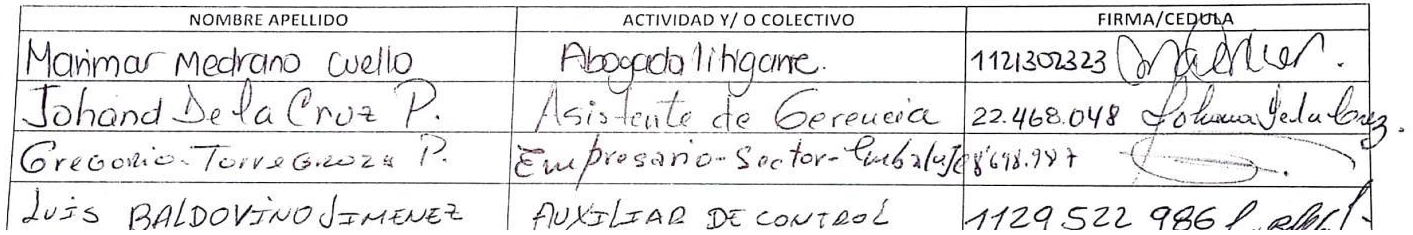 NOMBRE APELLIDO ACTIVIDAD Y/ O COLECTIVO FIRMA/CEDULA
Marimar Medrano Cuello Abogada litigante. 1121302323
Johand De la Cruz P. Asistente de Gerencia 22.468.048 Johana De la Cruz.
Gregorio Torregroza P. Empresario-Sector-Embalaje 8'698.987
LUIS BALDOVINO JIMENEZ AUXILIAR DE CONTROL 1129 522 986